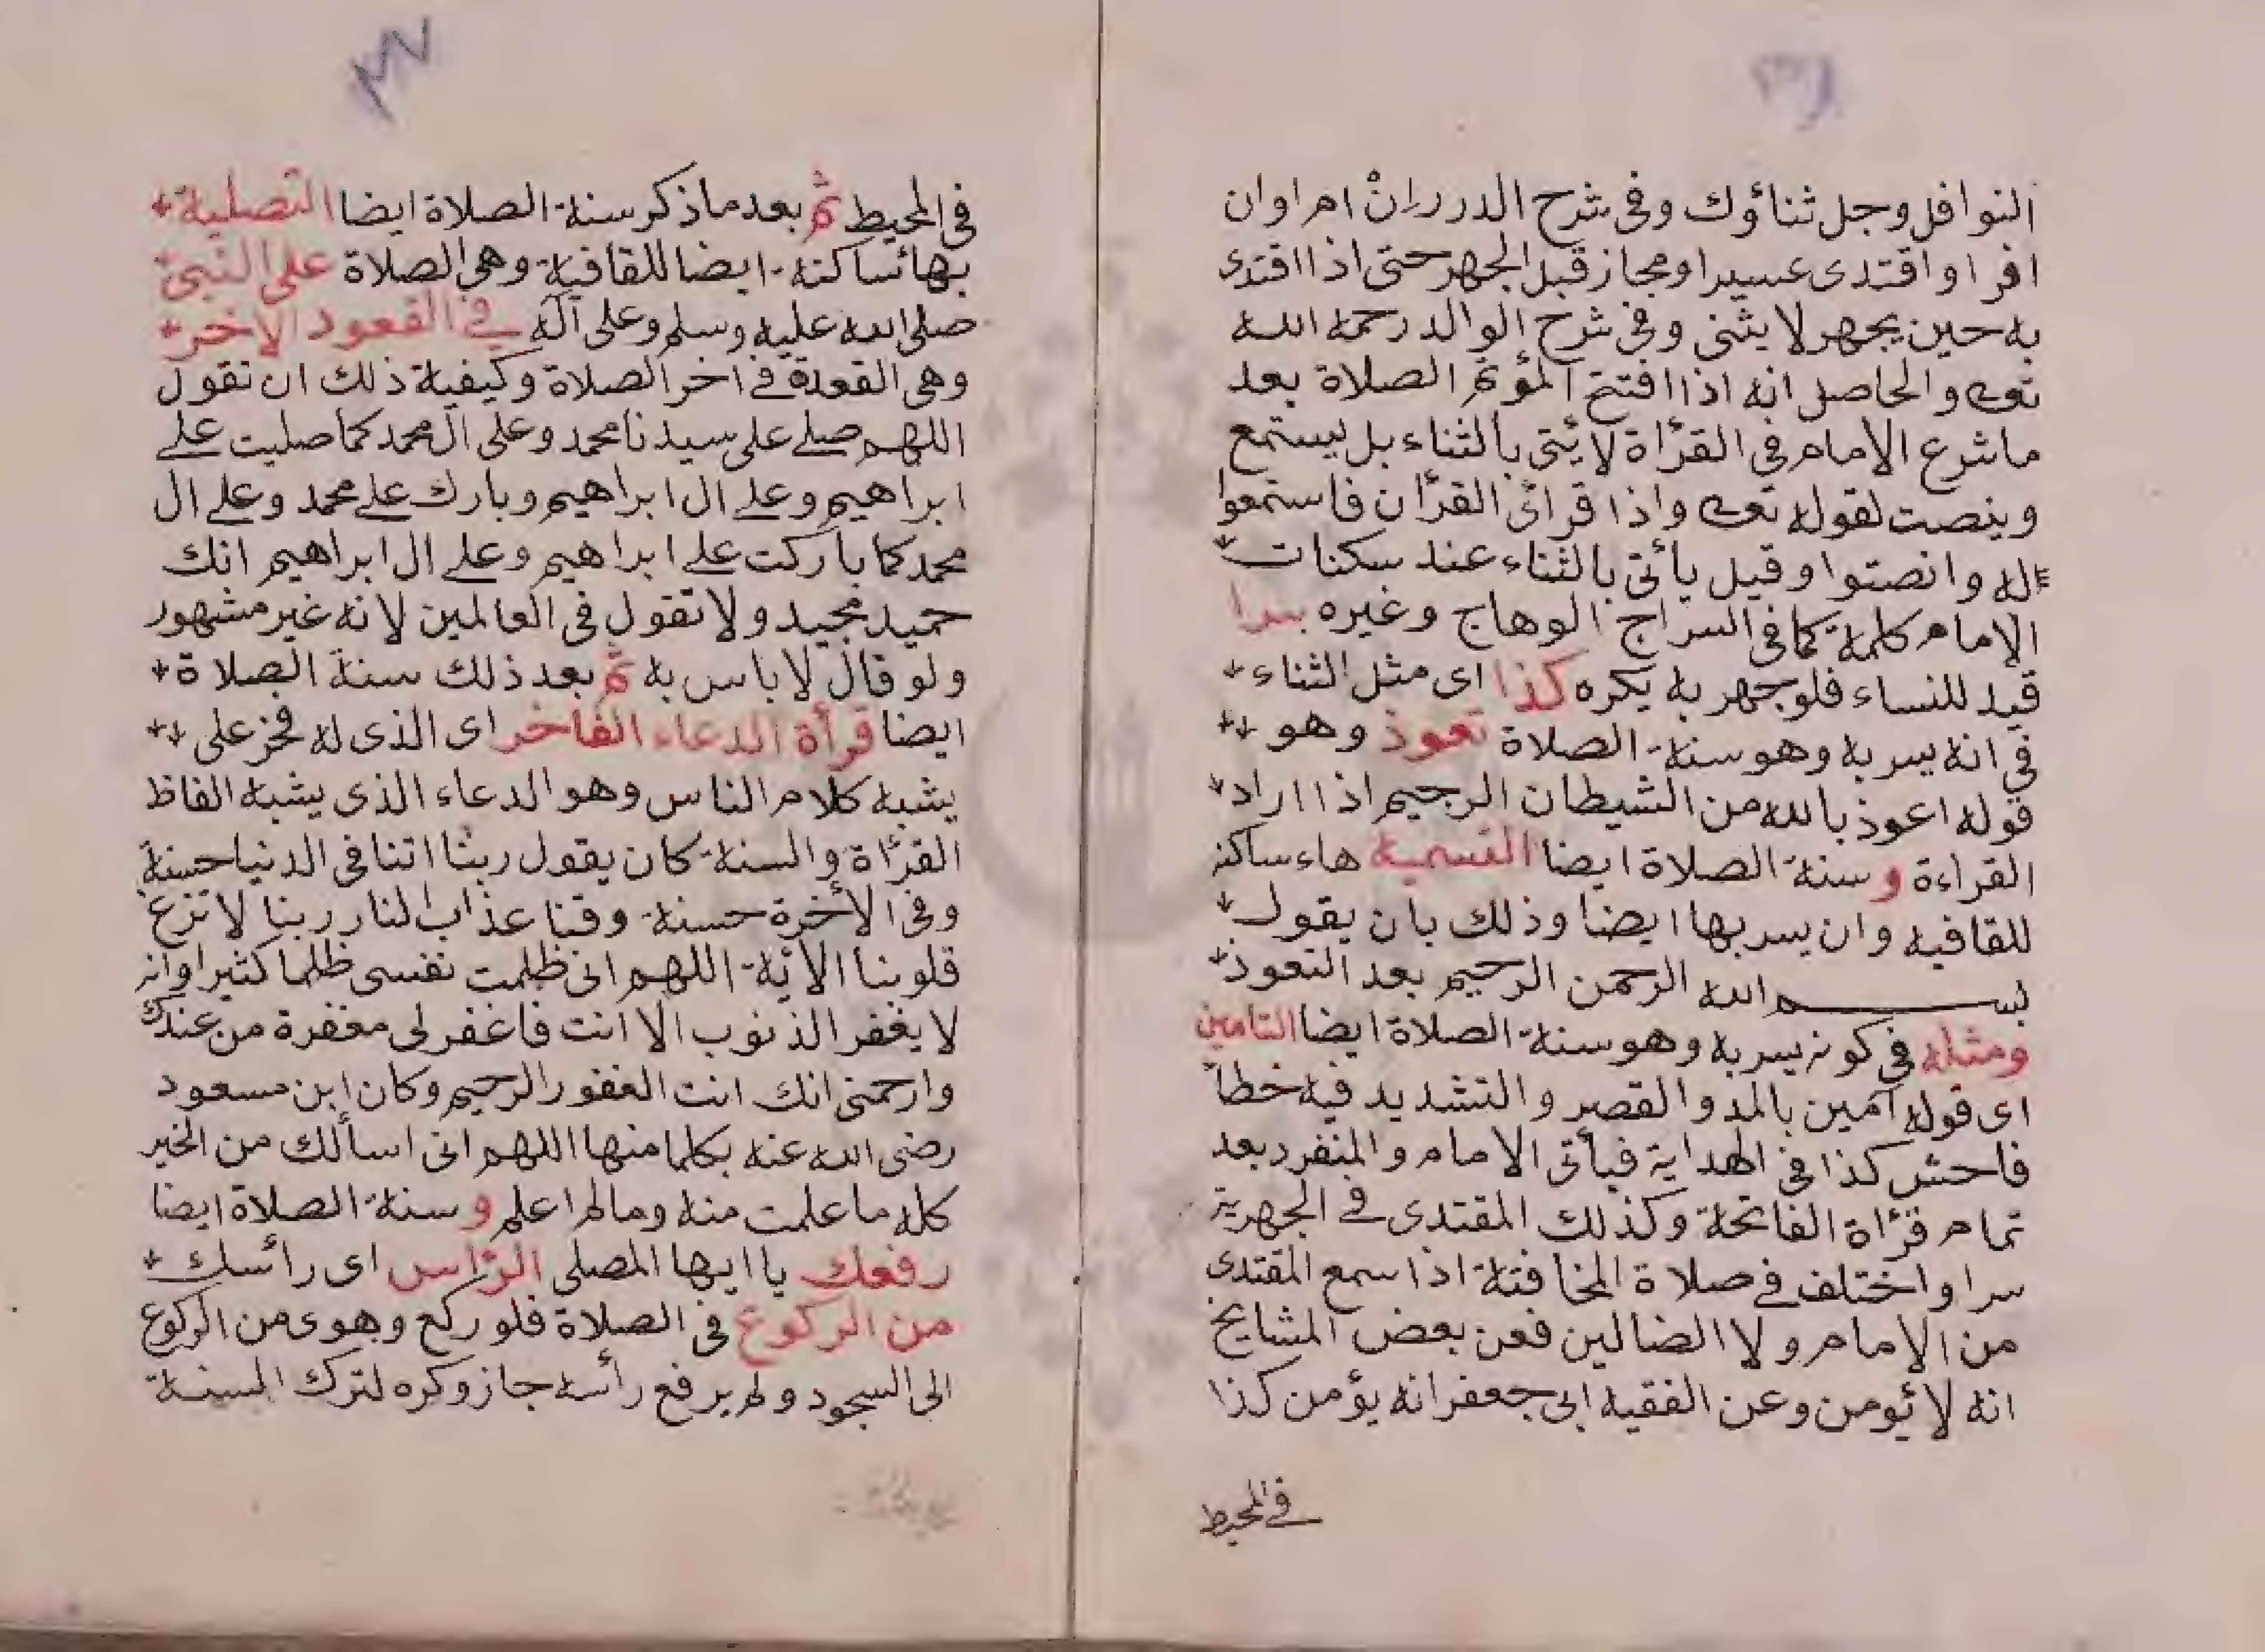 النوافل وجل ثناؤك وفى شرح الدرر ان ام اوان
افرا واقتدى عسيرا ومجاز قبل الجهر حتى اذا اقتدى
به حين يجهر لا يثنى وفى شرح الوالد رحمه الله
تعه والحاصل انه اذا افتتح المؤتم الصلاة بعد
ما شرع الامام فى القرأة لا يئتى بالثناء بل يستمع
وينصت لقوله تعه واذا قرائ القرأن فاستمعوا
له وانصتوا وقيل يأتى بالثناء عند سكنات
الامام كلمة كما فى السراج الوهاج وغيره سرا
قيد للنساء فلو جهر به يكره كذا اى مثل الثناء
في انه يسر به وهو سنة الصلاة تعوذ وهو
قوله اعوذ بالله من الشيطان الرجيم اذا اراد
القراءة و سنة الصلاة ايضا التسمية هاء ساكنه
للقافيه وان يسر بها ايضا وذلك بان يقول
بسم الله الرحمن الرحيم بعد التعوذ
ومثله في كونه يسر به وهو سنة الصلاة ايضا التامين
اى قوله آمين بالمد والقصر والتشديد فيه خطأ
فاحش كذا فى الهداية فيأتى الامام والمنفرد بعد
تمام قرأة الفاتحة وكذلك المقتدى فى الجهرية
سرا واختلف فى صلاة المخافتة اذا سمع المقتدى
من الامام ولا الضالين فعن بعض المشايخ
انه لا يؤمن وعن الفقيه ابى جعفر انه يؤمن كذا
فى المحيط
فى المحيط ثم بعد ما ذكر سنة الصلاة ايضا التصلية
بها ساكنة ايضا للقافية وهى الصلاة على النبي
صلى الله عليه وسلم وعلى آله في القعود الاخر
وهى القعدة فى اخر الصلاة وكيفية ذلك ان تقول
اللهم صلے على سيدنا محمد وعلى آل محمد كما صليت علے
ابراهيم وعلے ال ابراهيم وبارك علے محمد وعلے ال
محمد كما باركت علے ابراهيم وعلے ال ابراهيم انك
حميد مجيد ولا تقول فى العالمين لانه غير مشهور
ولو قال لا باس به ثم بعد ذلك سنة الصلاة
ايضا قرأة الدعاء الفاخر اى الذى له فخر على
يشبه كلام الناس وهو الدعاء الذى يشبه الفاظ
القرأة والسنة كان يقول ربنا اتنا فى الدنيا حسنة
وفى الأخرة حسنة وقنا عذاب النار ربنا لا تزع
قلوبنا الأية اللهم انى ظلمت نفسى ظلما كثيرا وانه
لا يغفر الذنوب الا انت فاغفر لى مغفرة من عندك
وارحمنى انك انت الغفور الرحيم وكان ابن مسعود
رضى الله عنه بكلما منها اللهم انى اسألك من الخير
كله ما علمت منه وما لم اعلم و سنة الصلاة ايضا
رفعك يا ايها المصلى الرأس اى رأسك
من الركوع فى الصلاة فلو ركع وهوى من الركوع
الى السجود ولم يرفع رأسه جاز وكره لترك السنة